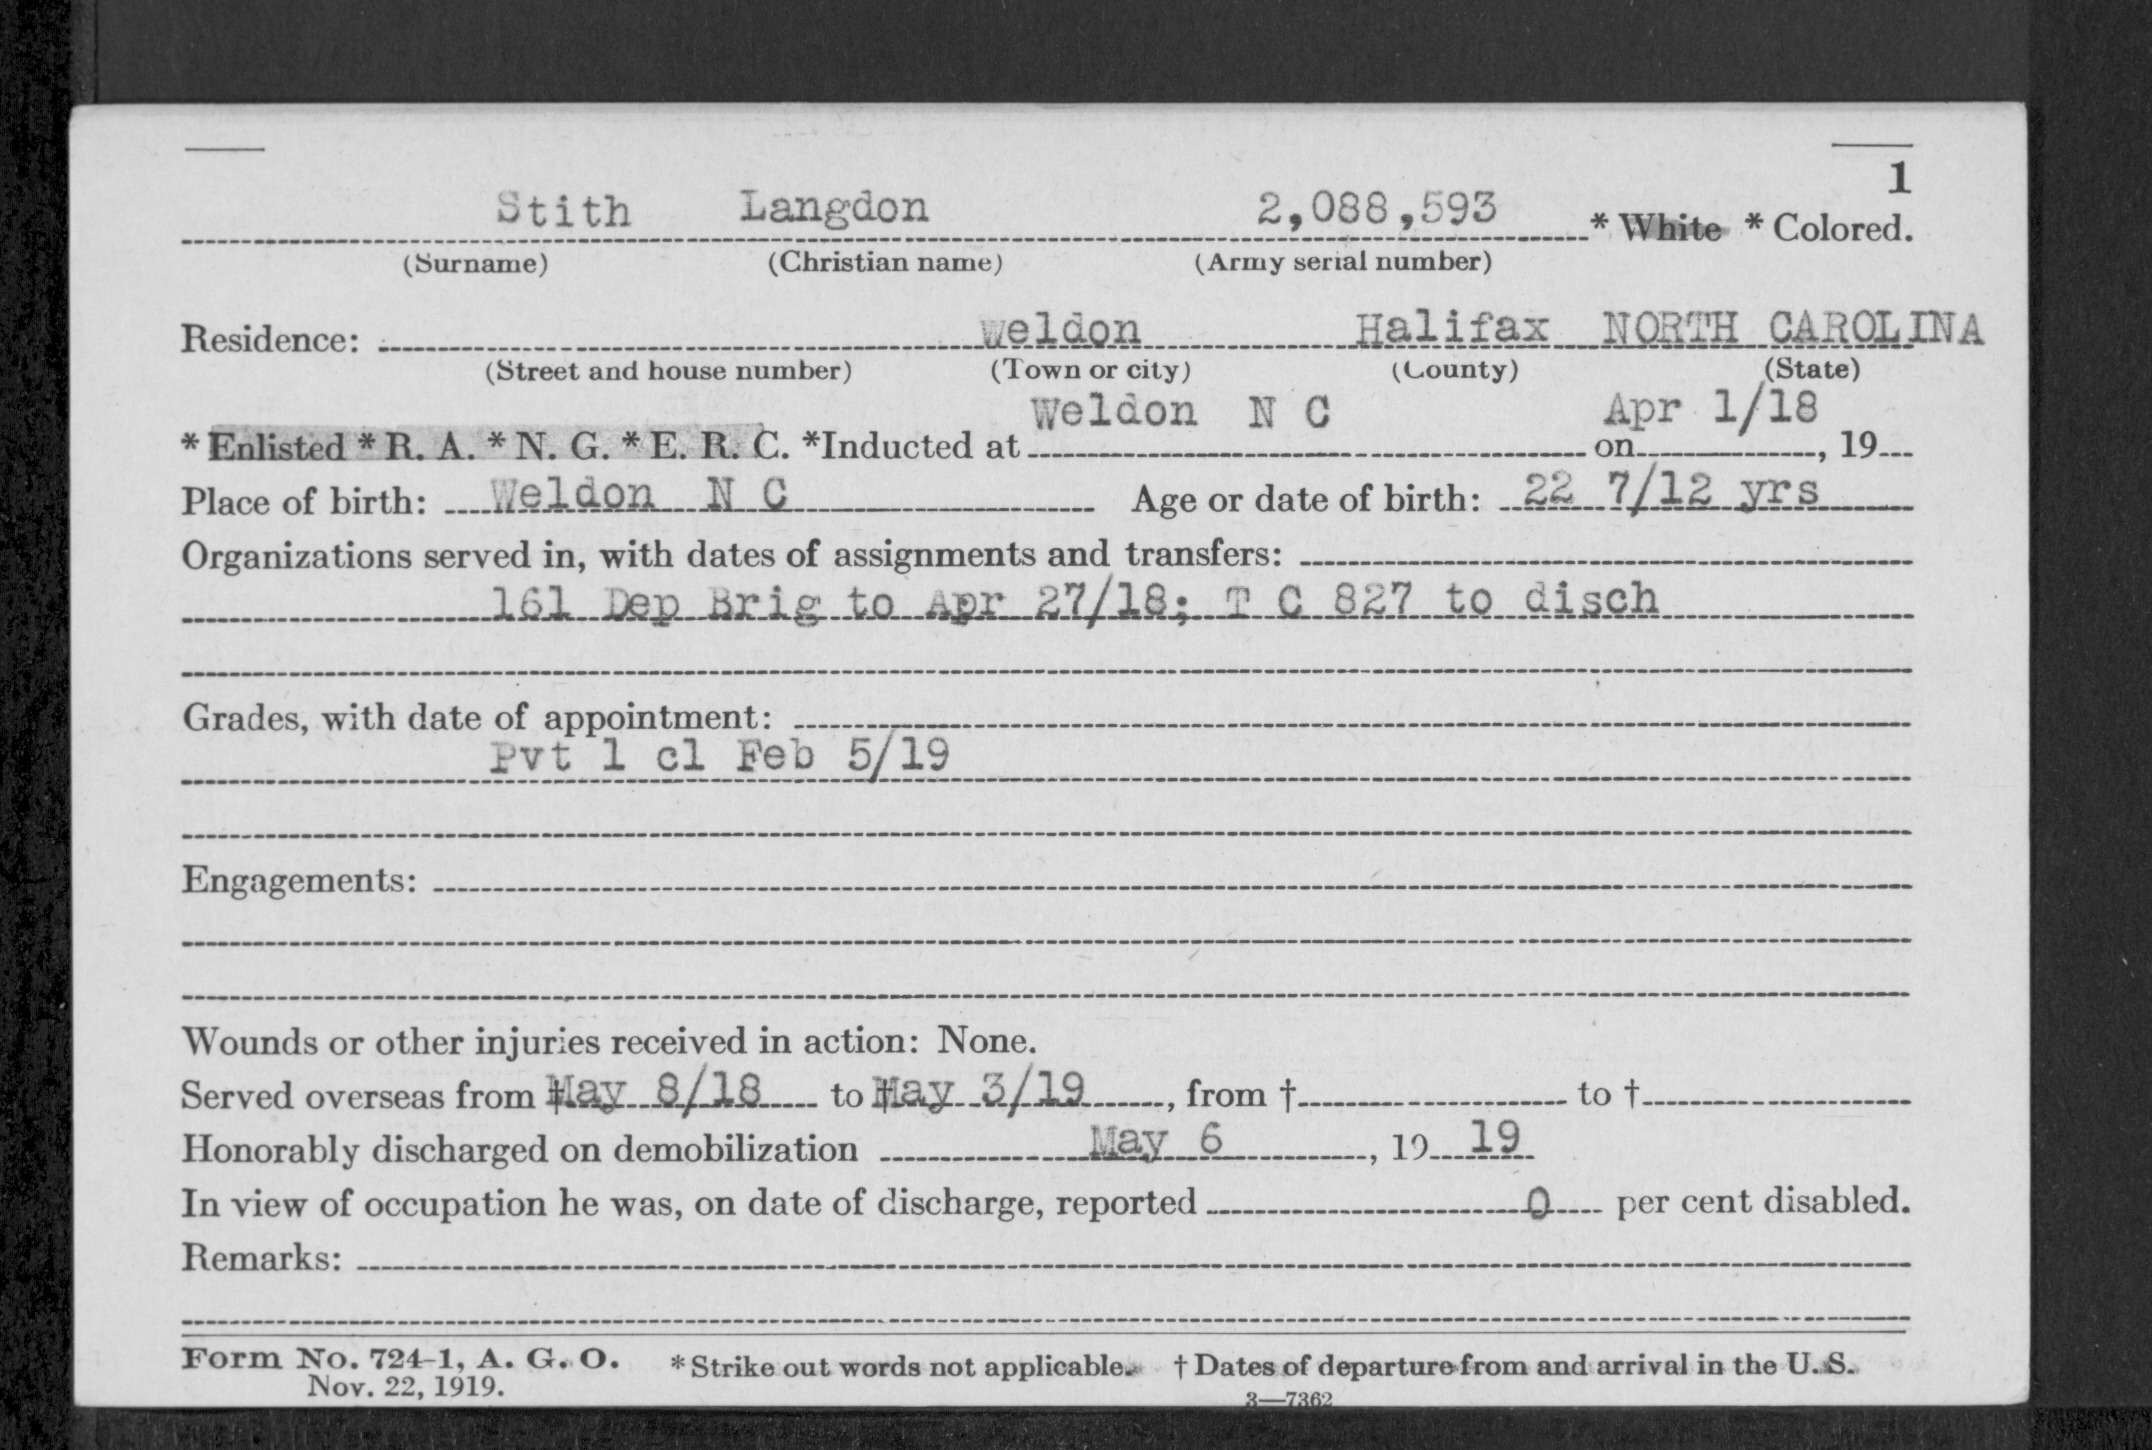 1
Stith Langdon 2,088,593 * White * Colored.
(Surname) (Christian name) (Army serial number)
Residence: Weldon Halifax NORTH CAROLINA
(Street and house number) (Town or city) (County) (State)
Weldon N C Apr 1/18
* Enlisted * R. A. * N. G. * E. R. C. *Inducted at on , 19
Place of birth: Weldon N C Age or date of birth: 22 7/12 yrs
Organizations served in, with dates of assignments and transfers:
161 Dep Brig to Apr 27/18; T C 827 to disch
Grades, with date of appointment:
Pvt 1 cl Feb 5/19
Engagements:
Wounds or other injuries received in action: None.
Served overseas from † May 8/18 to † May 3/19 , from † to †
Honorably discharged on demobilization May 6 , 19 19
In view of occupation he was, on date of discharge, reported 0 per cent disabled.
Remarks:
Form No. 724-1, A. G. O. * Strike out words not applicable. † Dates of departure from and arrival in the U. S.
Nov. 22, 1919.
3—7362